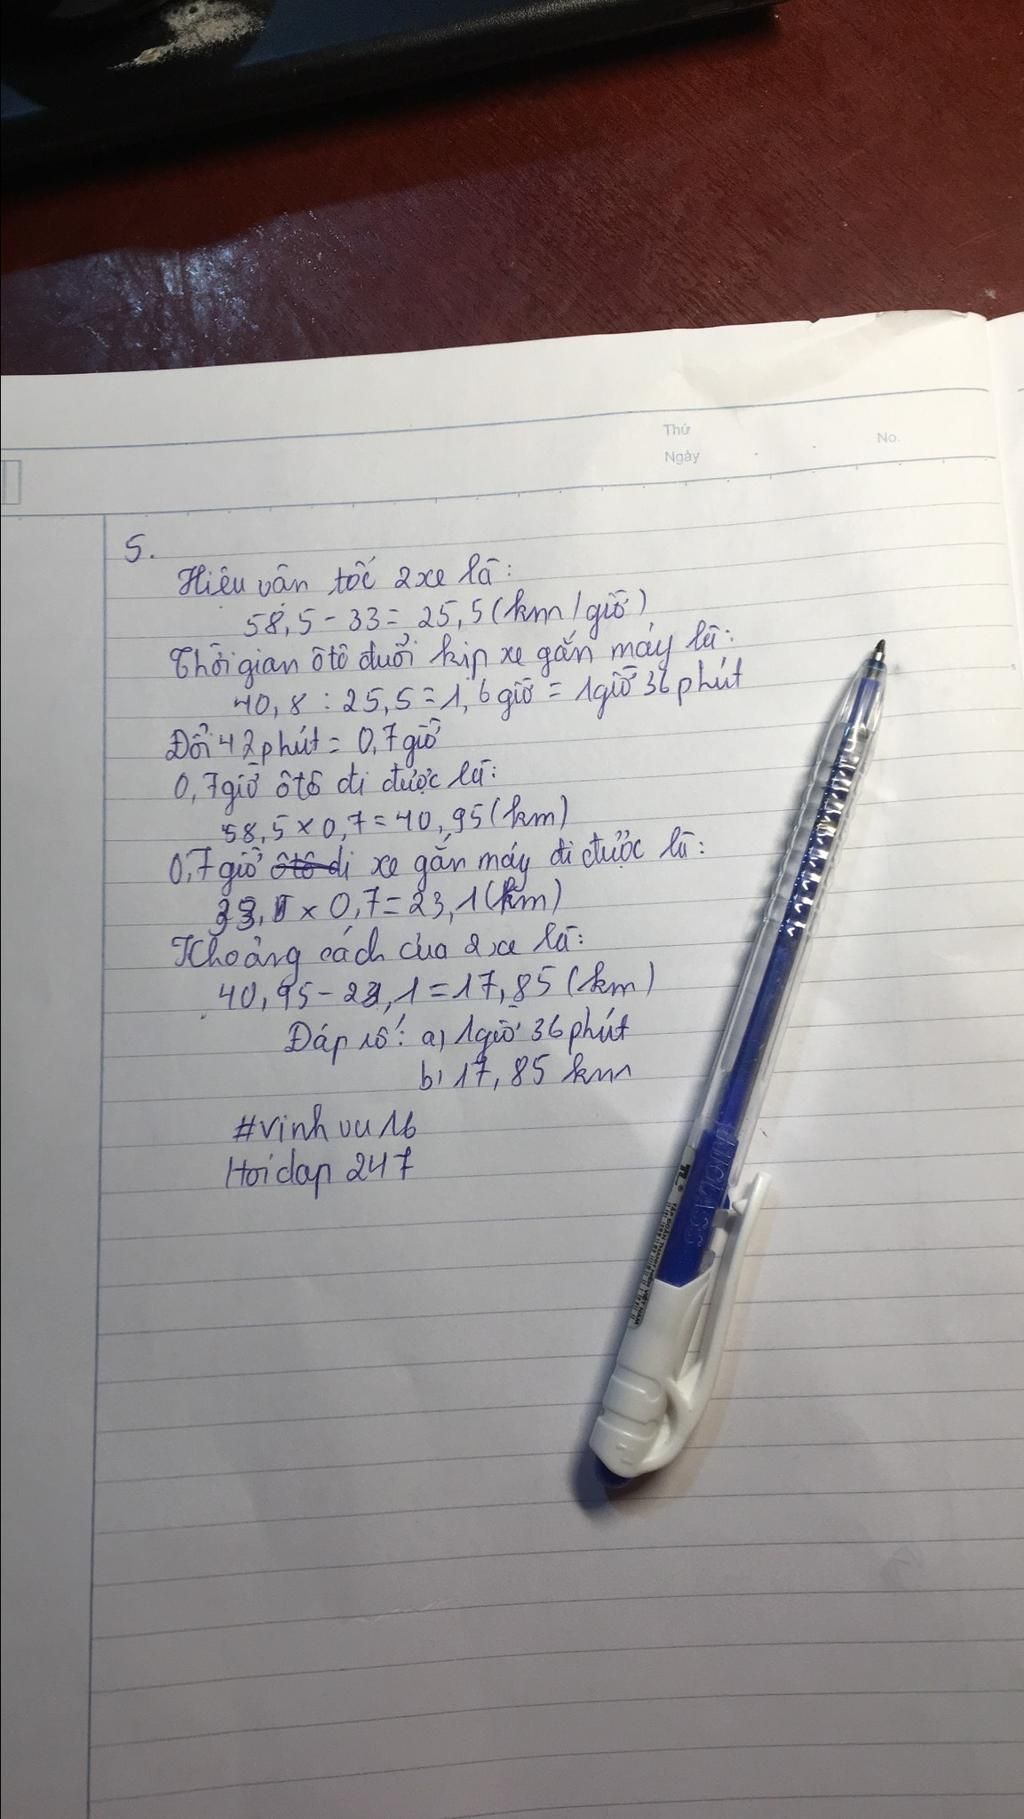 Thứ
Ngày
No.
5.
Hiệu vân tốc 2 xe là:
58,5 - 33 = 25,5 (km/giờ)
Thời gian ôtô đuổi kịp xe gắn máy là:
40,8 : 25,5 = 1,6 giờ = 1 giờ 36 phút
Đổi 42 phút = 0,7 giờ
0,7 giờ ôtô đi được là:
58,5 x 0,7 = 40,95 (km)
0,7 giờ ôtô đi xe gắn máy đi được là:
33, x 0,7 = 23,1 (km)
Khoảng cách của 2 xe là:
40,95 - 23,1 = 17,85 (km)
Đáp số: a) 1 giờ 36 phút
b) 17,85 km
#vinhvu16
Hoidap247
TL